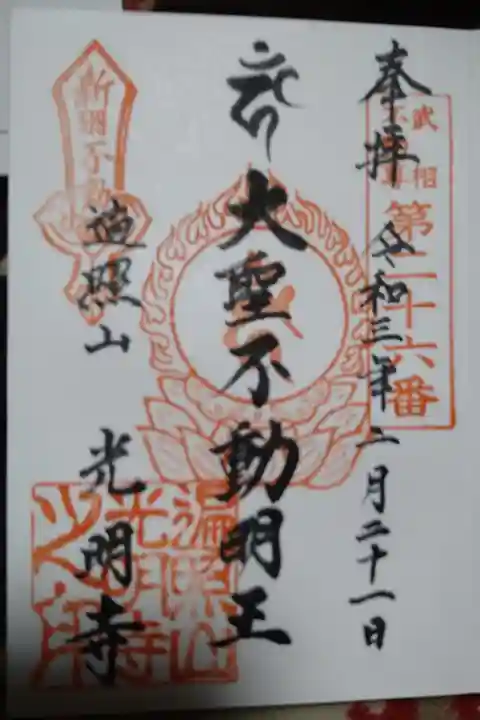 奉拝
令和三年二月二十一日
武相
不動尊
第二十六番
大聖不動明王
新羽不動
遍照山
光明寺
遍照山
光明寺
之印